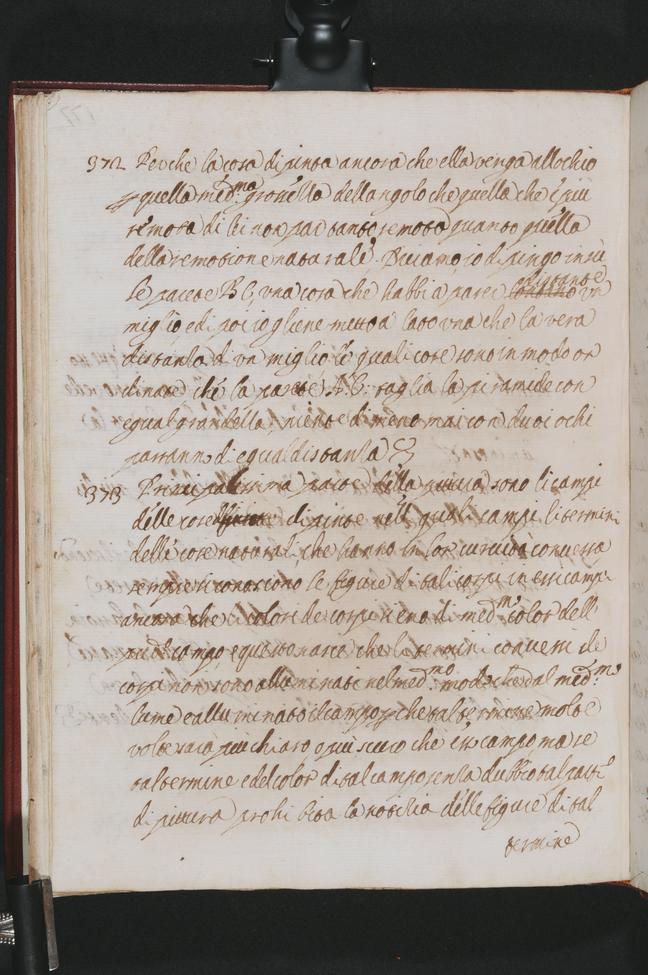 372 Perche la cosa dipinta ancora che ella venga allochio
p quella med.ma grossezza dell angolo che quella che è piu
remota di lei non par tanto remota quanto quella
della remotione naturale. Diciamo io dipingo in sù
le parete B C, vna cosa che habbi a parer distante vn
miglio e di poi io gliene metto a lato vna che la vera
distantia di vn miglio le quali cose sono in modo or
dinate che la parete A.C. taglia la piramide con
egual grandezza, niente di meno mai con duoi ochi
parranno di equal distantia
373 Principalissima parte della pittura sono li campi
delle cose dipinte nelli quali campi li termini
delle cose naturali che hanno in lor curuità conuessa
sempre si conoscono le figure di tali corpi in essi campi
ancora che li colori de corpi sieno di med.mo color dell
pred.o campo, e questo nasce che li termini conuessi de
corpi non sono alluminati nel med.mo modo che dal med.mo
lume e alluminato il campo, p che tal termine molte
volte sarà piu chiaro o piu scuro che esso campo, ma se
tal termine e del color di tal campo senza dubbio tal parte
di pittura prohibira la notitia delle figure di tal
termine